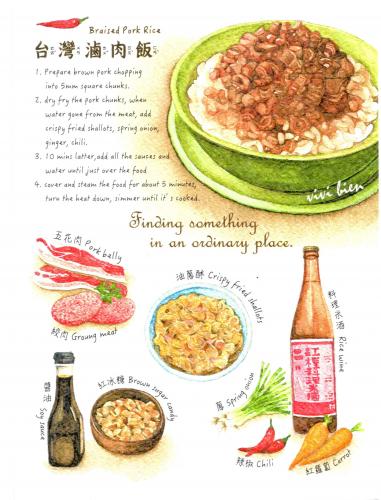 Braised Pork Rice
台灣滷肉飯
1. Prepare brown pork chopping
into 5mm square chunks.
2. dry fry the pork chunks, when
water gone from the meat, add
crispy fried shallots, spring onion,
ginger, chili.
3. 10 mins latter,add all the sauces and
water until just over the food
4. cover and steam the food for about 5 minutes,
turn the heat down, simmer until it's cooked.
vivi bien
Finding something
in an ordinary place.
五花肉 Pork belly
絞肉 Groung meat
油蔥酥 Crispy fried shallots
料理米酒 Rice wine
醬油 Soy sauce
紅冰糖 Brown sugar candy
蔥 Spring onion
紅標料理米酒
辣椒 Chili
紅蘿蔔 Carrot